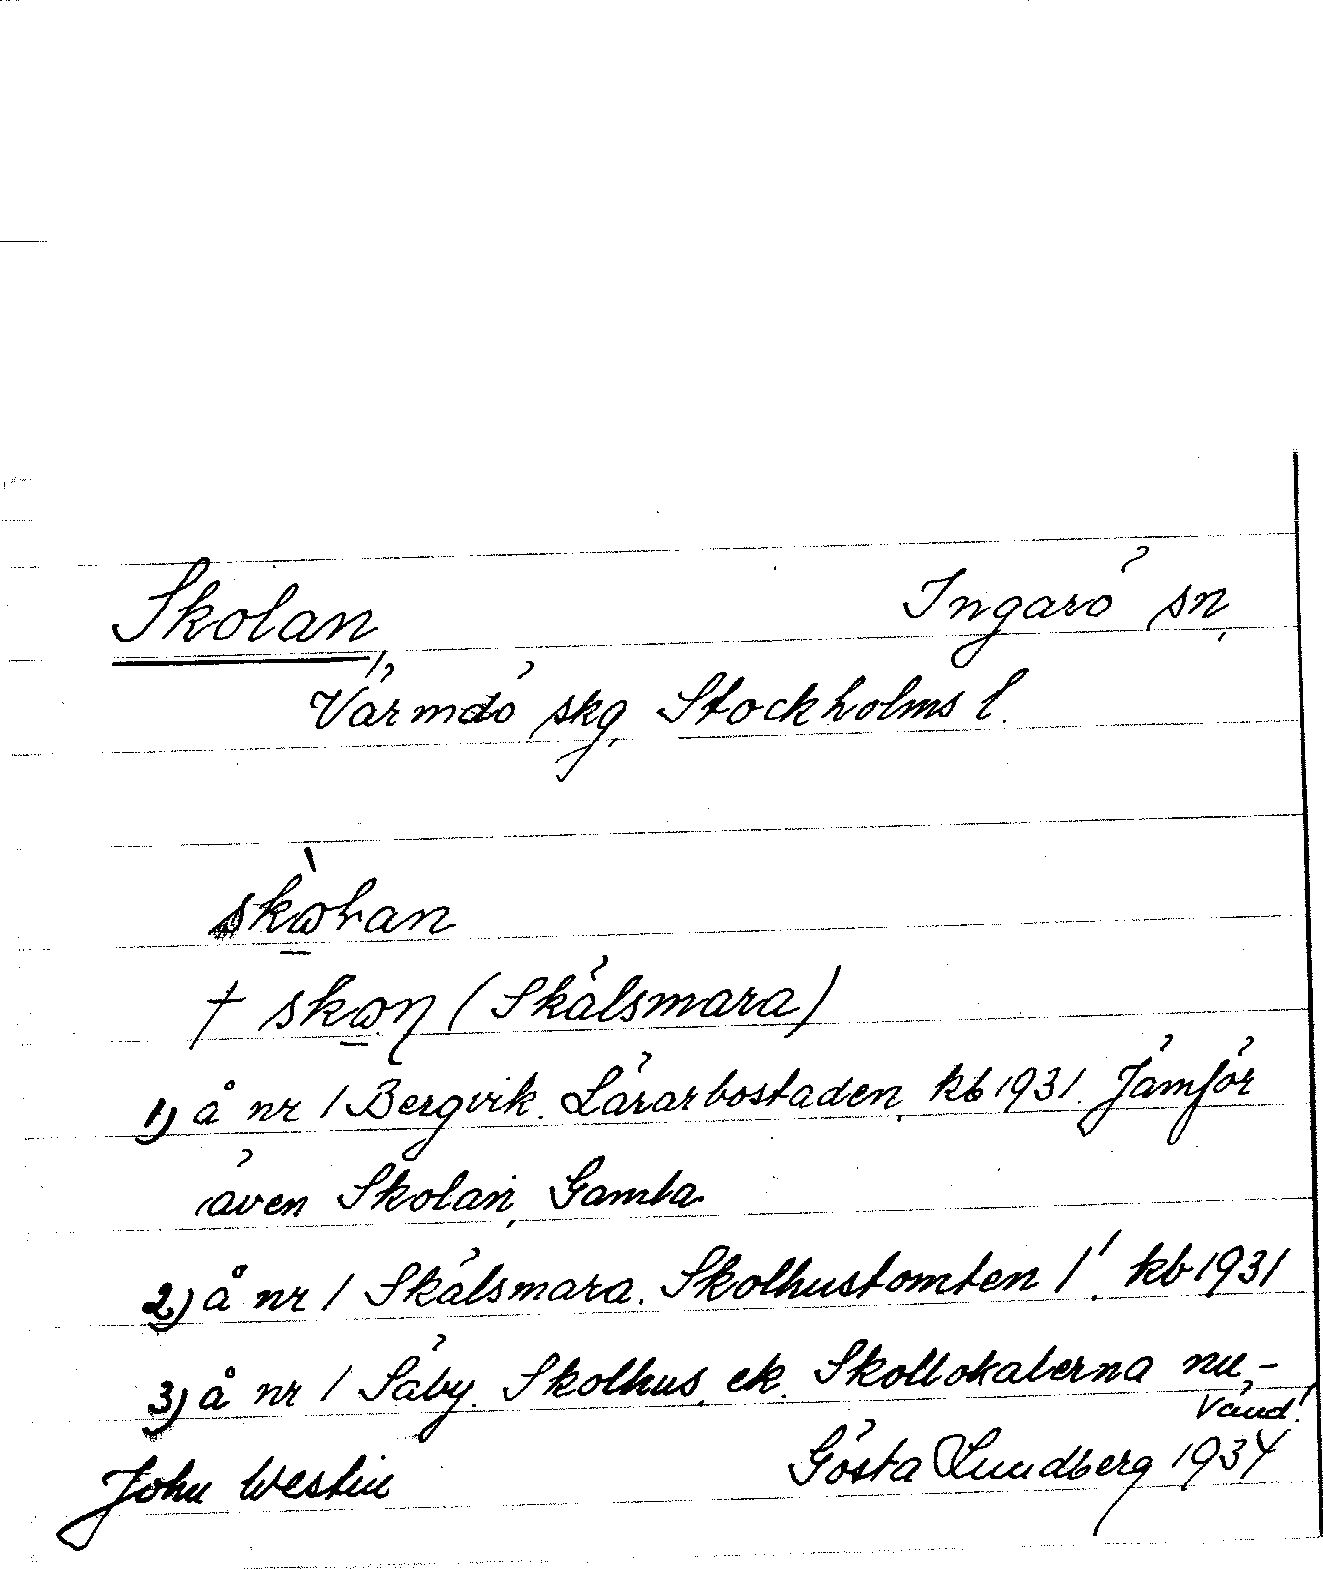 Skolan, Ingarö sn,
Värmdö skg, Stockholms l.
skòlan
† skon (Skälsmara)
1) å nr 1 Bergvik. Lärarbostaden, kb 1931. Jämför
även Skolan, Gamla
2) å nr 1 Skälsmara. Skolhustomten 1'. kb 1931
3) å nr 1 Säby. Skolhus, ek. Skollokalerna nu,-
Vänd!
John Westin Gösta Lundberg 1934